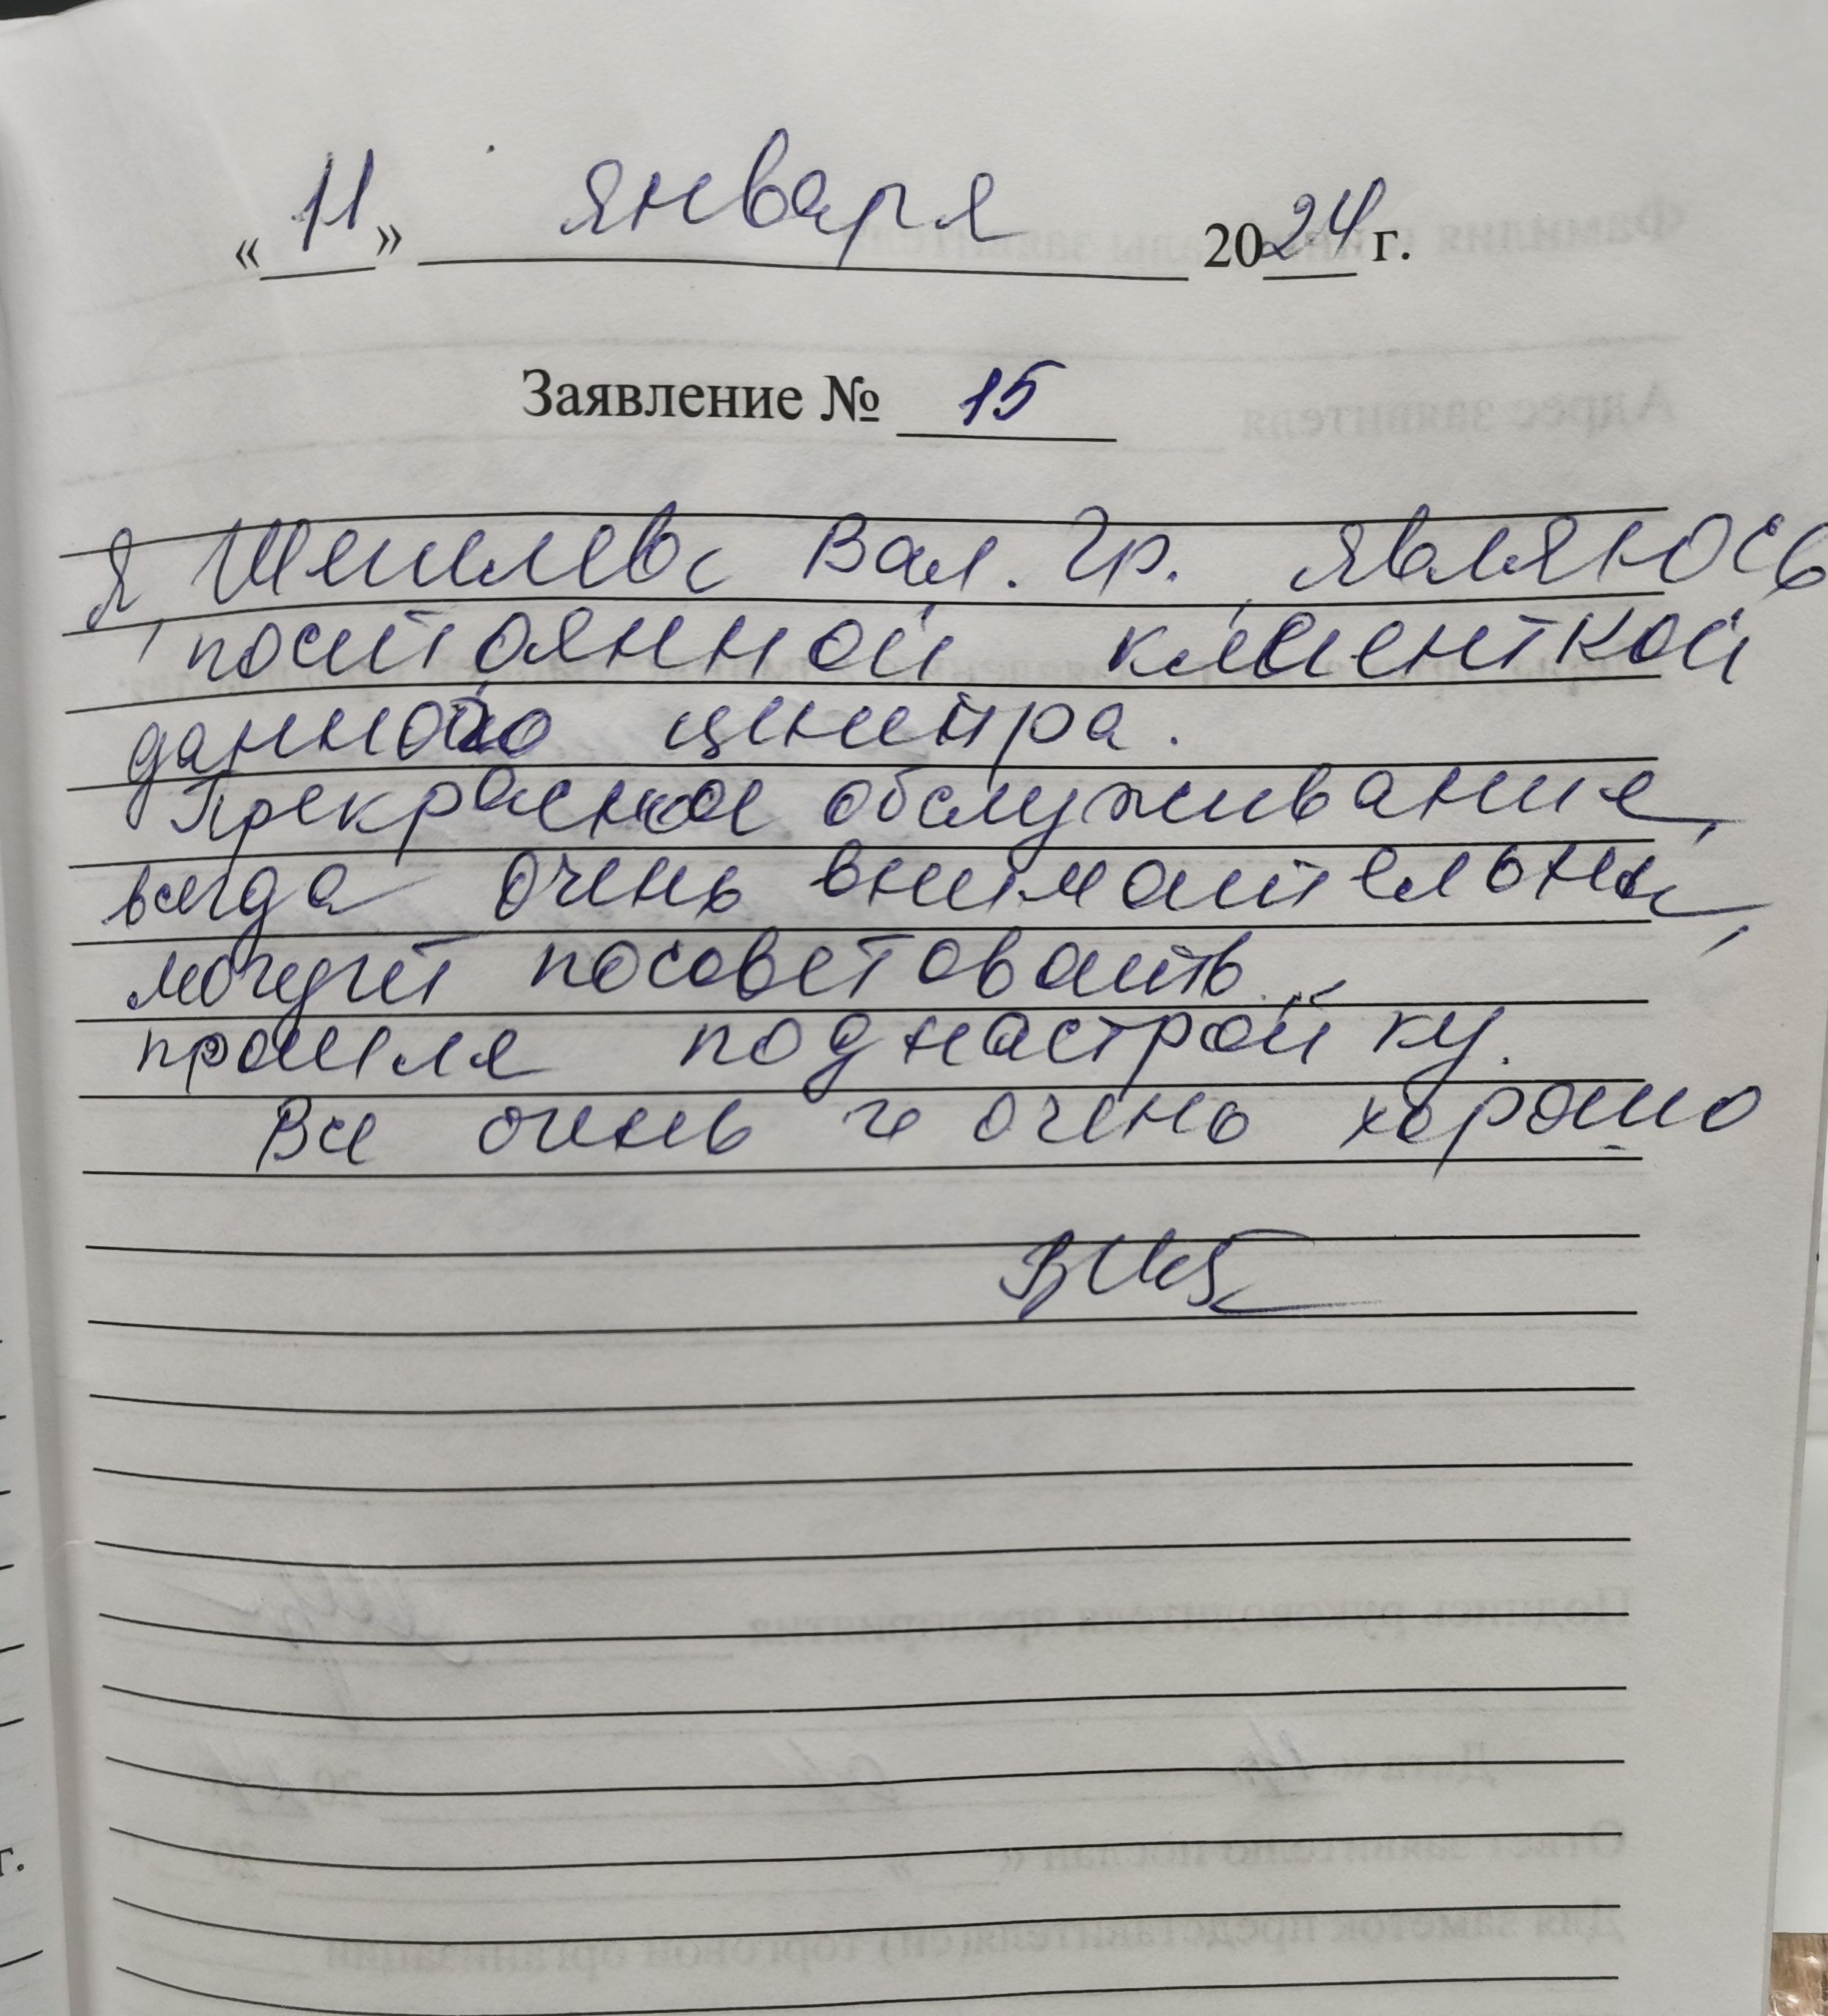 «11» января 2024 г.
Заявление № 15
Я Шепилева Вал. Гр. являюсь
постоянной клиенткой
данного центра.
Прекрасное обслуживание,
всегда очень внимательны,
могут посоветовать
прошла поднастройку.
Все очень и очень хорошо